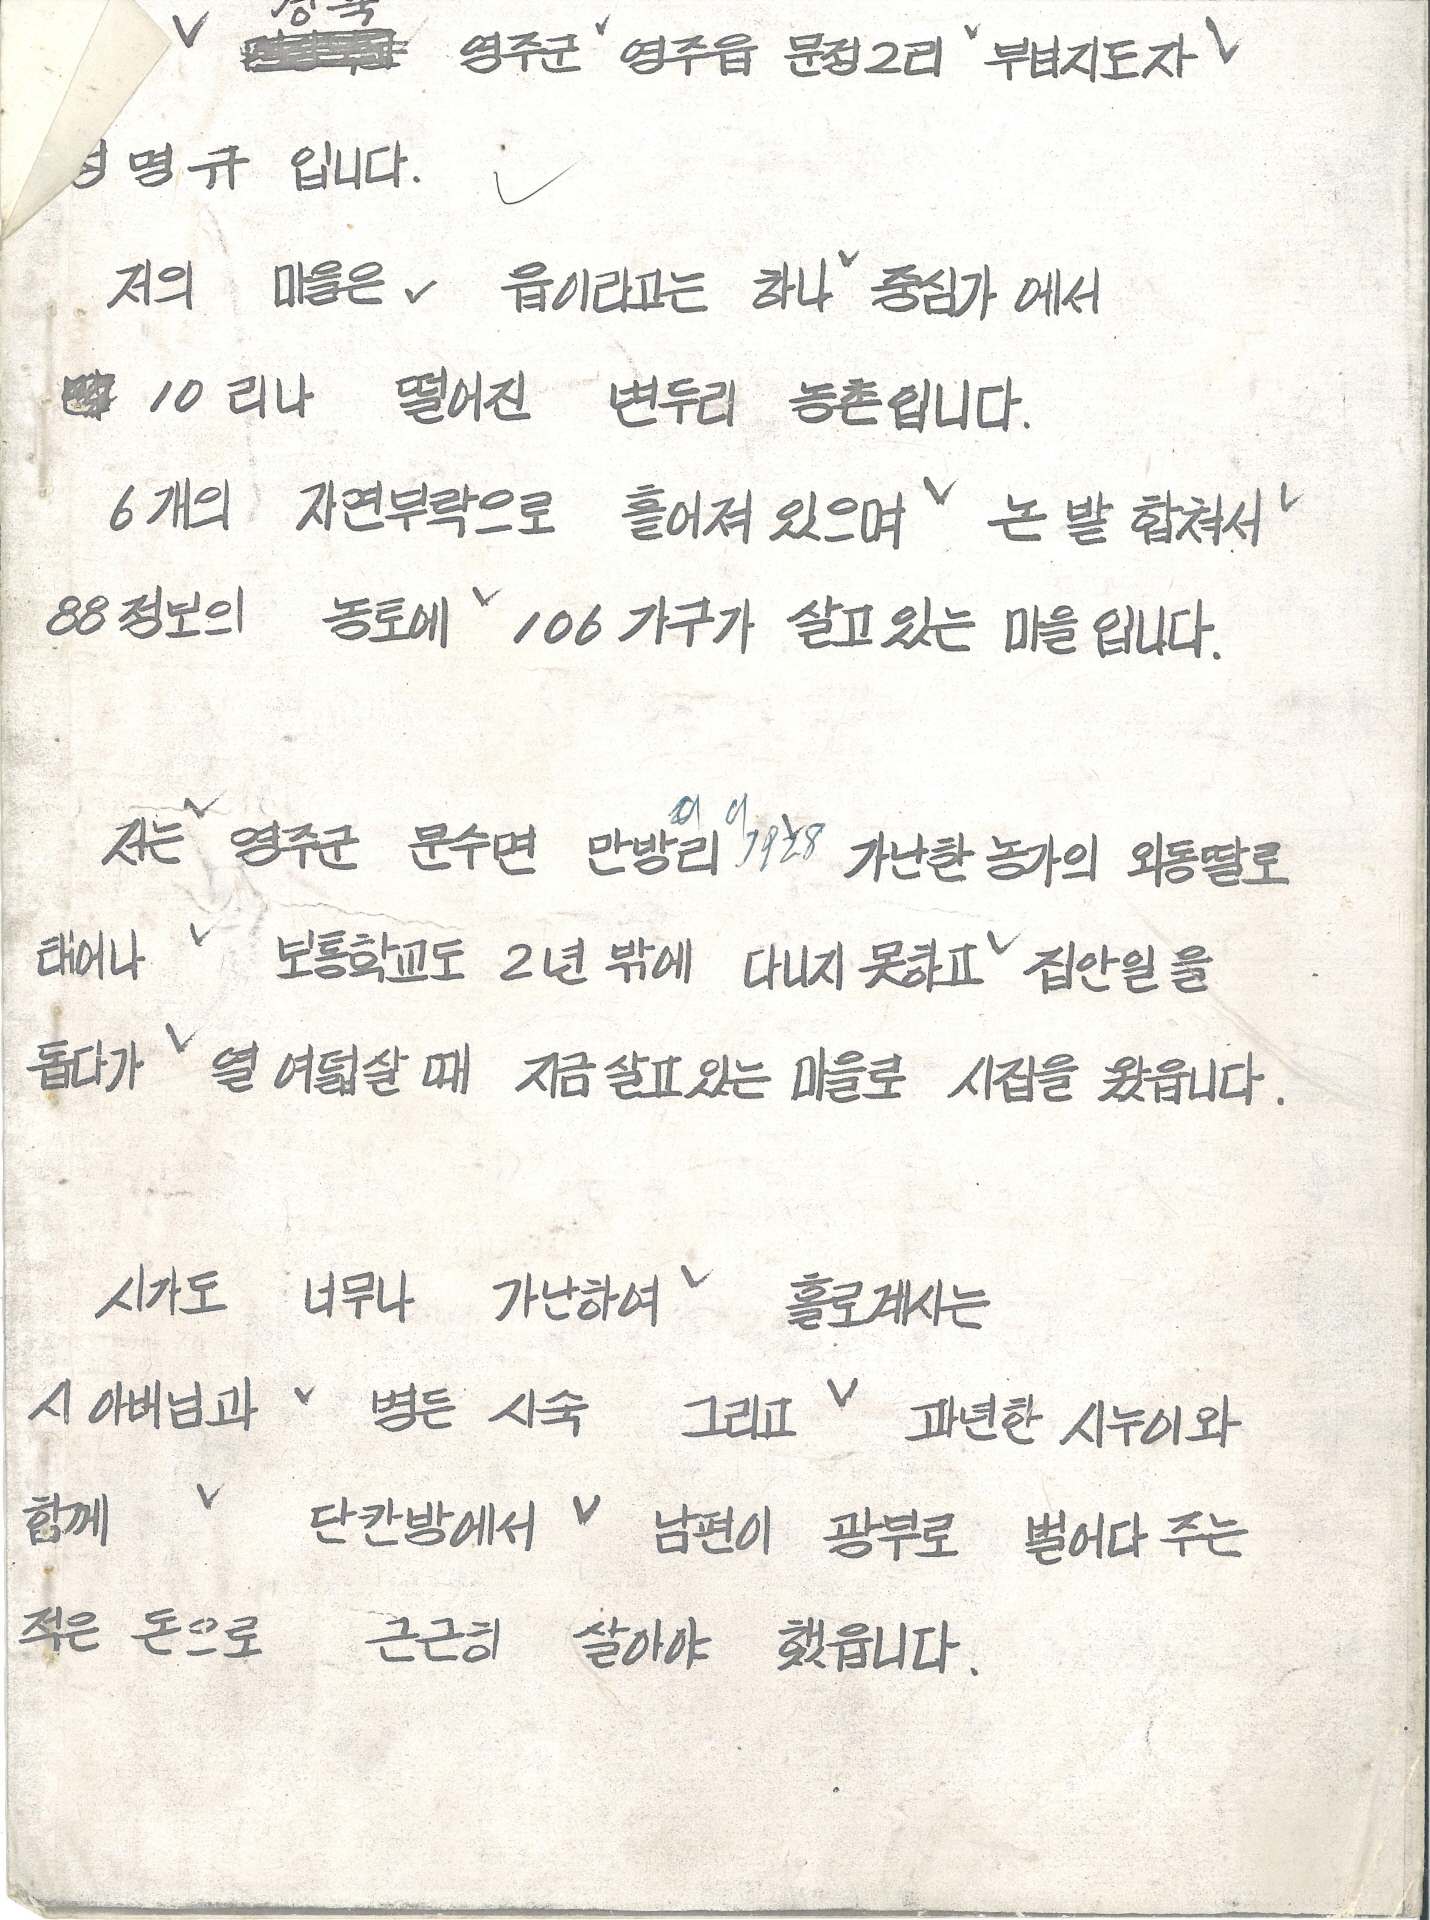 경북
영주군 영주읍 문정2리 부녀지도자
명규 입니다.
저의 마을은 읍이라고는 하나 중심가 에서
10 리나 떨어진 변두리 농촌입니다.
6개의 자연부락으로 흩어져 있으며 논 밭 합쳐서
88정보의 농토에 106 가구가 살고 있는 마을 입니다.
저는 영주군 문수면 만방리 가난한 농가의 외동딸로
태어나 보통학교도 2년 밖에 다니지 못하고 집안일 을
돕다가 열 여덟살 때 지금 살고 있는 마을로 시집을 왔읍니다.
시가도 너무나 가난하여 홀로계시는
시 아버님과 병든 시숙 그리고 과년한 시누이와
함께 단칸방에서 남편이 광부로 벌어다 주는
적은 돈으로 근근히 살아야 했읍니다.